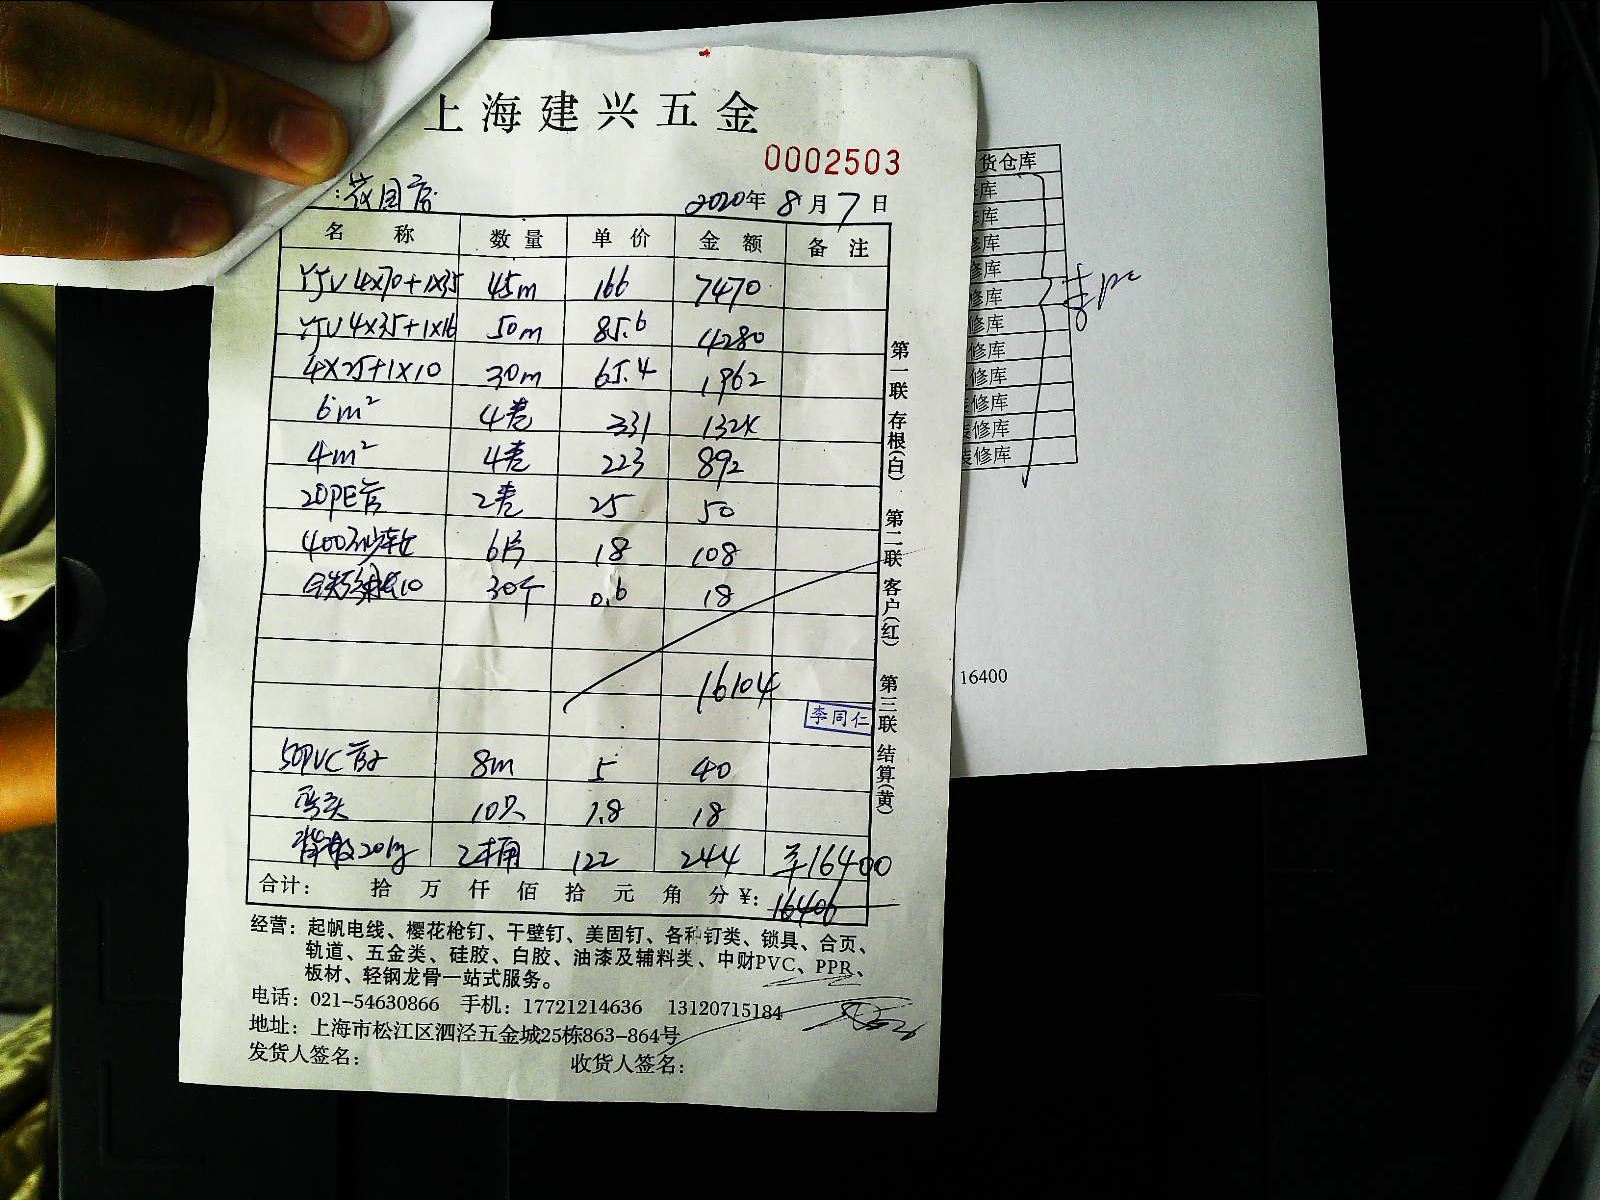 上海建兴五金
0002503
:花园店 2020年8月7日
名 称 数量 单价 金额 备注
YJV 4X70+1X35 45m 166 7470
YJV 4X35+1X16 50m 85.6 4280
4X25+1X10 30m 65.4 1962
6m² 4卷 331 1324
4m² 4卷 223 892
20PE管 2卷 25 50
400 6片 18 108
10 30个 0.6 18
16104
李同仁
50PVC管 8m 5 40
弯头 10只 1.8 18
20kg 2桶 122 244 ¥16400
合计: 拾 万 仟 佰 拾 元 角 分 ¥: 16406
经营: 起帆电线、樱花枪钉、干壁钉、美固钉、各种钉类、锁具、合页、
轨道、五金类、硅胶、白胶、油漆及辅料类、中财PVC、PPR、
板材、轻钢龙骨一站式服务。
电话: 021-54630866 手机: 17721214636 13120715184
地址: 上海市松江区泗泾五金城25栋863-864号
发货人签名: 收货人签名:
第一联 存根(白) 第二联 客户(红) 第三联 结算(黄)
货仓库
修库
修库
修库
修库
修库
修库
修库
修库
装修库
装修库
装修库
16400